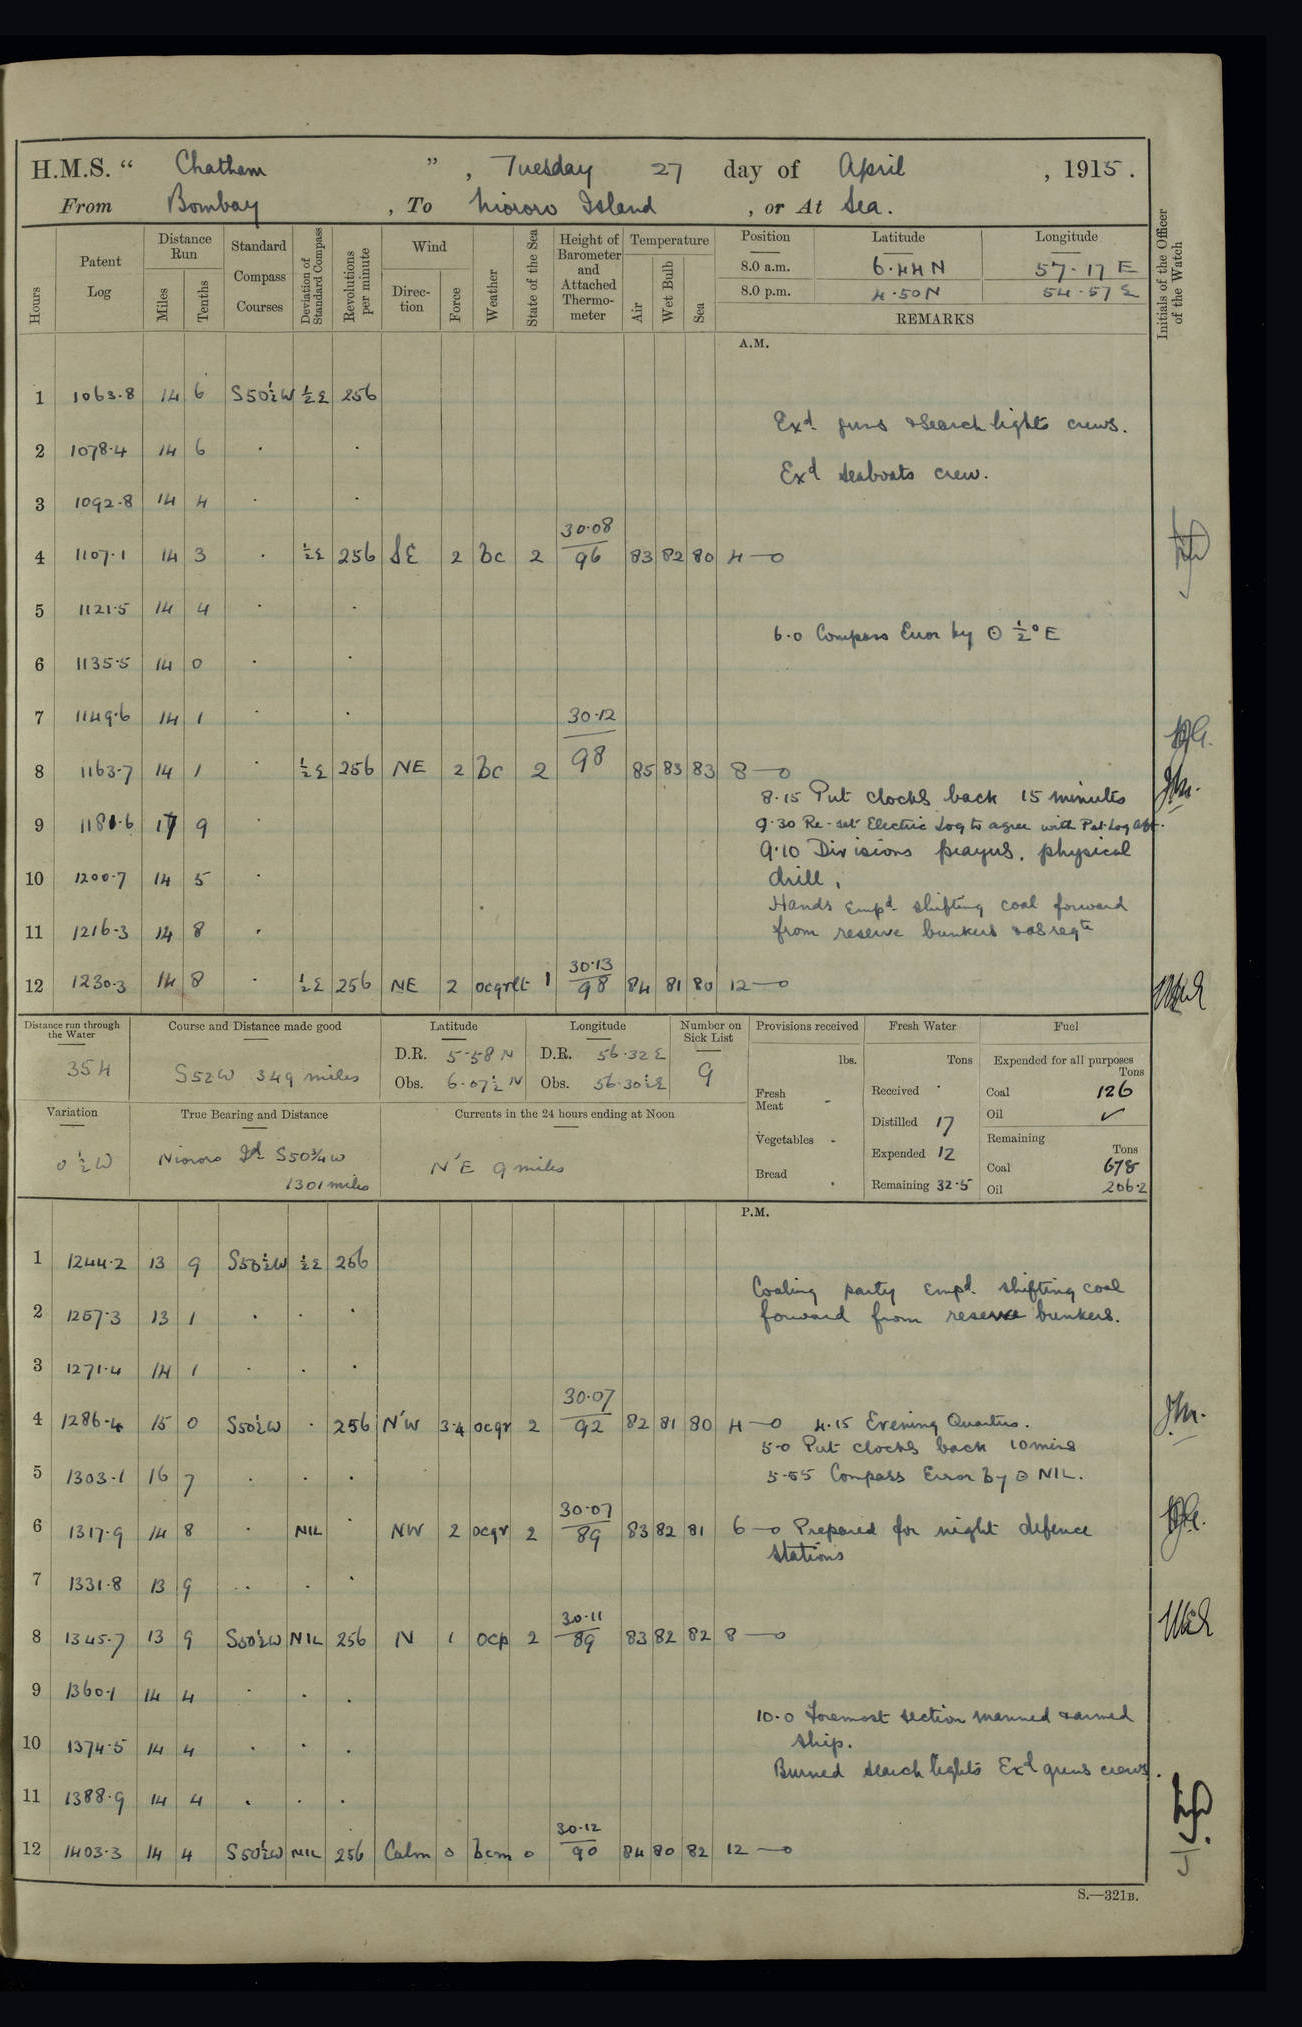 H.M.S. “ Chatham ”, Tuesday 27 day of April, 1915.
From Bombay, To Niororo Island, or At Sea.
Hours Patent Log Distance Run Miles Tenths Standard Compass Courses Deviation of Standard Compass Revolutions per minute Wind Direction Force Weather State of the Sea Height of Barometer and Attached Thermometer Temperature Air Wet Bulb Sea Position Latitude Longitude Initials of the Officer of the Watch
8.0 a.m. 6.44 N 57.17 E
8.0 p.m. 4.50 N 54.57 E
REMARKS
A.M.
1 1063.8 14 6 S50½W ½E 256
Exd guns & Search lights crews.
2 1078.4 14 6 . .
Exd seaboats crew.
3 1092.8 14 4 . .
4 1107.1 14 3 . ½E 256 SE 2 bc 2 30.08/96 83 82 80 4—0
5 1121.5 14 4 . .
6.0 Compass Error by ⊙ ½° E
6 1135.5 14 0 . .
7 1149.6 14 1 . .
8 1163.7 14 1 . ½E 256 NE 2 bc 2 30.12/98 85 83 83 8—0
8.15 Put clocks back 15 minutes
9 1181.6 17 9 .
9.30 Re-set Electric Log to agree with Pat. Log aft.
9.10 Divisions prayers, physical
10 1200.7 14 5 .
drill,
Hands Empd shifting coal forward
11 1216.3 14 8 .
from reserve bunkers & as reqte
12 1230.3 14 8 . ½E 256 NE 2 ocqrlt 1 30.13/98 84 81 80 12—0
Distance run through the Water 354
Course and Distance made good S52W 349 miles
Latitude D.R. 5.58 N Obs. 6.07½ N
Longitude D.R. 56.32 E Obs. 56.30½ E
Number on Sick List 9
Provisions received lbs. Fresh Meat - Vegetables - Bread .
Fresh Water Tons Received . Distilled 17 Expended 12 Remaining 32.5
Fuel Expended for all purposes Tons Coal 126 Oil ✓ Remaining Tons Coal 678 Oil 206.2
Variation 0½W
True Bearing and Distance Niororo Id S50¾W 1301 miles
Currents in the 24 hours ending at Noon N'E 9 miles
P.M.
1 1244.2 13 9 S50½W ½E 256
Coaling party Empd shifting coal
2 1257.3 13 1 . . .
forward from reserve bunkers.
3 1271.4 14 1 . . .
4 1286.4 15 0 S50½W . 256 N'W 3.4 ocqr 2 30.07/92 82 81 80 4—0 4.15 Evening Quarters.
5.0 Put clocks back 10 mins
5 1303.1 16 7 . . .
5.55 Compass Error by ⊙ NIL.
6 1317.9 14 8 . NIL . NW 2 ocqr 2 30.07/89 83 82 81 6—0 Prepared for night defence
stations
7 1331.8 13 9 . . .
8 1345.7 13 9 S50½W NIL 256 N 1 ocp 2 30.11/89 83 82 82 8—0
9 1360.1 14 4 . . .
10.0 Foremost section manned & armed
10 1374.5 14 4 . . .
ship.
Burned search lights Exd guns crews.
11 1388.9 14 4 . . .
12 1403.3 14 4 S50½W NIL 256 Calm 0 bcm 0 30.12/90 84 80 82 12—0
S.—321B.